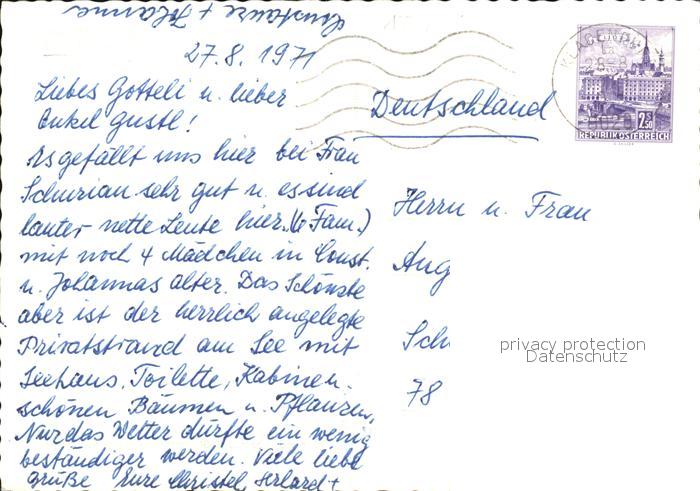 Constanze + Johanna
27.8.1971
Liebes Gotteli u. lieber
Enkel Gustl!
Es gefällt uns hier bei Frau
Schurian sehr gut u. es sind
lauter nette Leute hier. (6 Fam.)
mit noch 4 Mädchen in Const.
u. Johannas alter. Das Schönste
aber ist der herrlich angelegte
Privatstrand am See mit
Seehaus, Toilette, Kabinen.
schönen Bäumen u. Pflanzen,
Nur das Wetter dürfte ein wenig
beständiger werden. Viele liebe
Grüße Eure Christel, Erhard +
Deutschland
Herrn u. Frau
Aug
Sch
78
KLAGENFU
28.-8
2.50
S
REPUBLIK ÖSTERREICH
privacy protection
Datenschutz